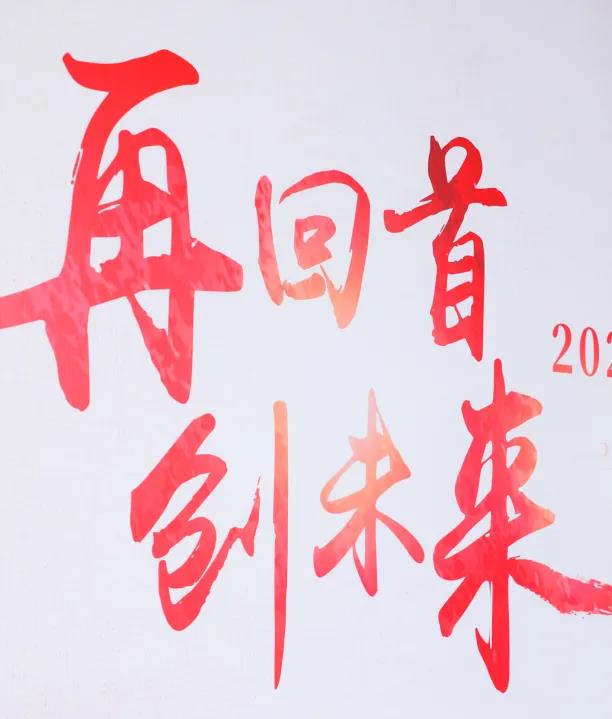 再回首
202
创未来